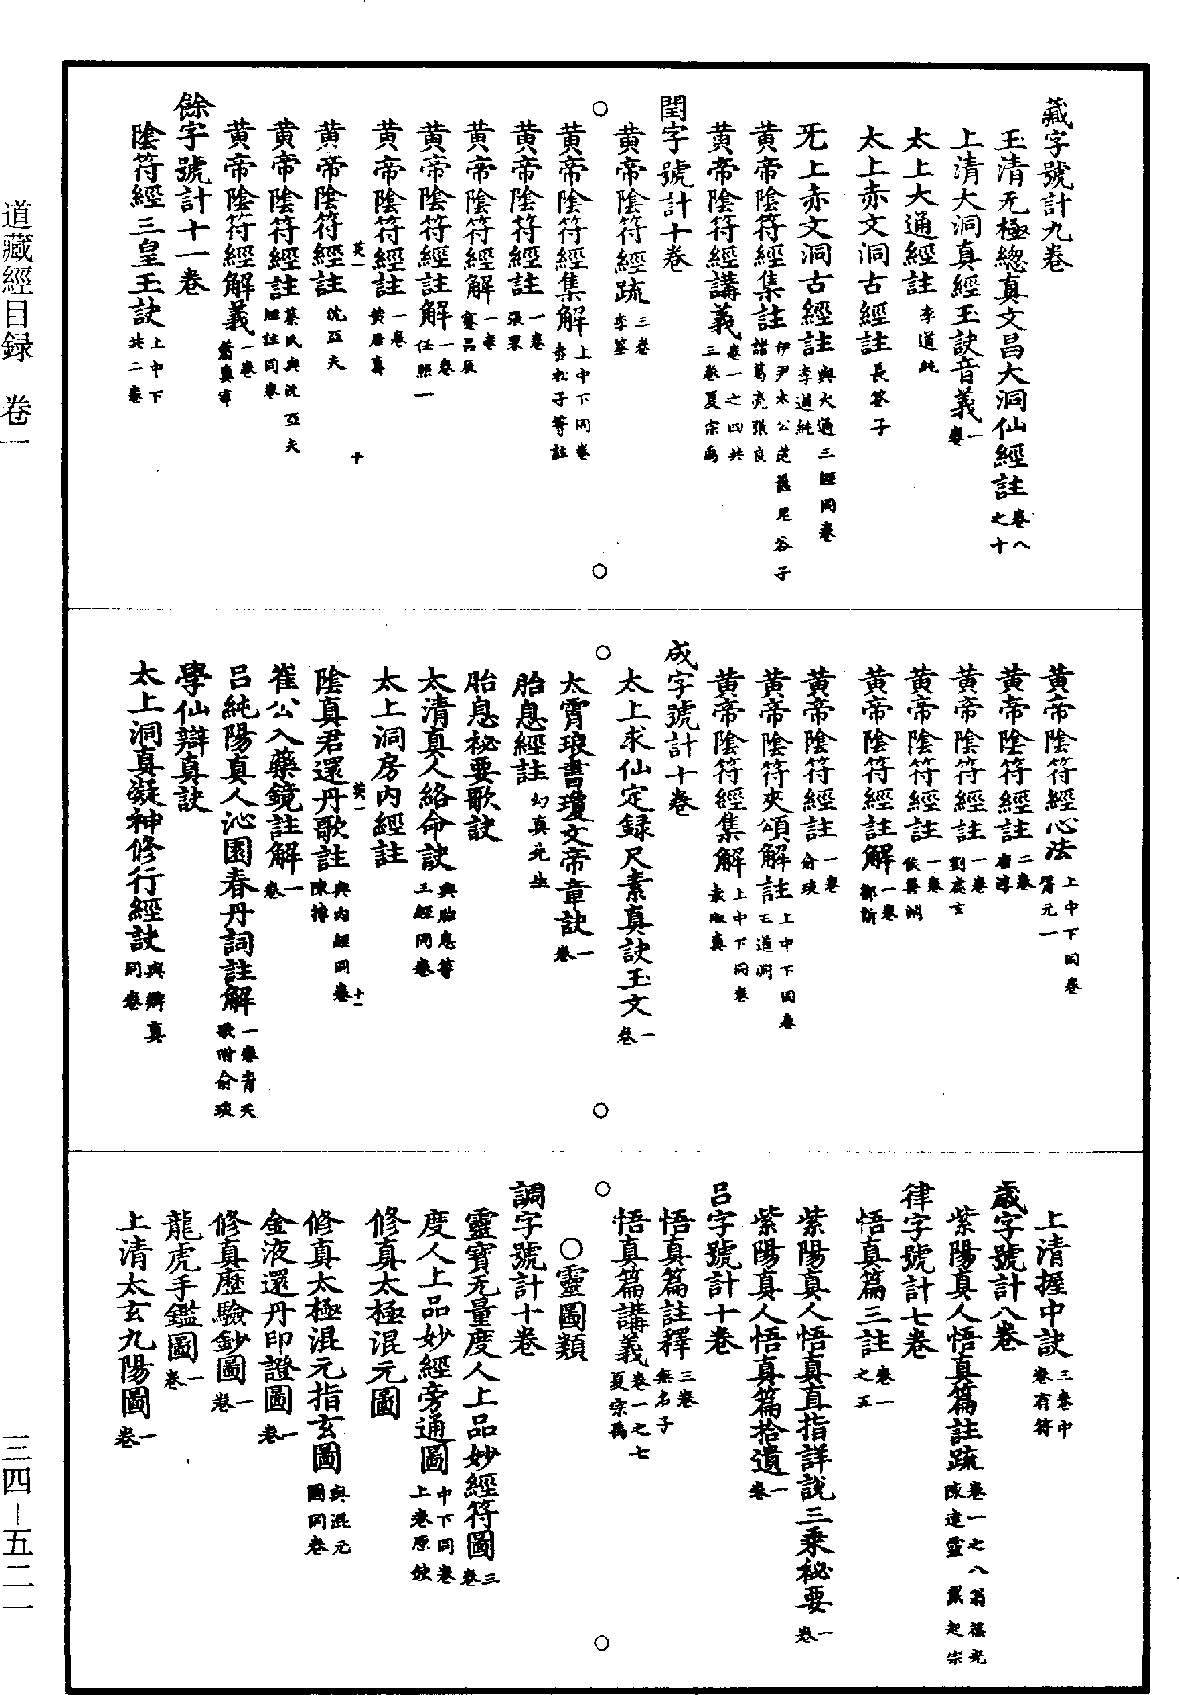 藏字號計九卷
玉清无極總真文昌大洞仙經註 卷八之十
上清大洞真經玉訣音義 一卷
太上大通經註 李道純
太上赤文洞古經註 長筌子
无上赤文洞古經註 與大通三經同卷李道純
黄帝陰符經集註 伊尹太公范蠡鬼谷子諸葛亮張良
黄帝陰符經講義 卷一之四共三卷夏宗禹
閏字號計十卷
黄帝陰符經疏 三卷李筌
黄帝陰符經集解 上中下同卷赤松子等註
黄帝陰符經註 一卷張果
黄帝陰符經解 一卷蹇昌辰
黄帝陰符經註解 一卷任照一
黄帝陰符經註 一卷黄居真
英一 十
黄帝陰符經註 沈亞夫
黄帝陰符經註 蔡氏與沈亞夫胆註同卷
黄帝陰符經解義 一卷蕭真宰
餘字號計十一卷
陰符經三皇玉訣 上中下共二卷
黄帝陰符經心法 上中下同卷胥元一
黄帝陰符經註 二卷唐淳
黄帝陰符經註 一卷劉處玄
黄帝陰符經註 一卷侯善淵
黄帝陰符經註解 一卷鄒訢
黄帝陰符經註 一卷俞琰
黄帝陰符夾頌解註 上中下同卷王道淵
黄帝陰符經集解 上中下同卷袁淑真
成字號計十卷
太上求仙定録尺素真訣玉文 一卷
太霄琅書瓊文帝章訣 一卷
胎息經註 幻真先生
胎息秘要歌訣
太清真人絡命訣 與胎息等三經同卷
太上洞房内經註
英一 十一
陰真君還丹歌註 與内經同卷陳摶
崔公入藥鏡註解 一卷
吕純陽真人沁園春丹詞註解 一卷青天歌附俞琰
學仙辯真訣
太上洞真凝神修行經訣 與辯真同卷
上清握中訣 三卷中卷有符
歲字號計八卷
紫陽真人悟真篇註疏 卷一之八翁葆光陳達靈戴起宗
律字號計七卷
悟真篇三註 卷一之五
紫陽真人悟真直指詳說三乘秘要 一卷
紫陽真人悟真篇拾遺 一卷
吕字號計十卷
悟真篇註釋 三卷無名子
悟真篇講義 卷一之七夏宗禹
○靈圖類
調字號計十卷
靈寶无量度人上品妙經符圖 三卷
度人上品妙經旁通圖 中下同卷上卷原缺
修真太極混元圖
修真太極混元指玄圖 與混元圖同卷
金液還丹印證圖 一卷
修真歷驗鈔圖 一卷
龍虎手鑑圖 一卷
上清太玄九陽圖 一卷
道藏經目録 卷一
三四－五二一